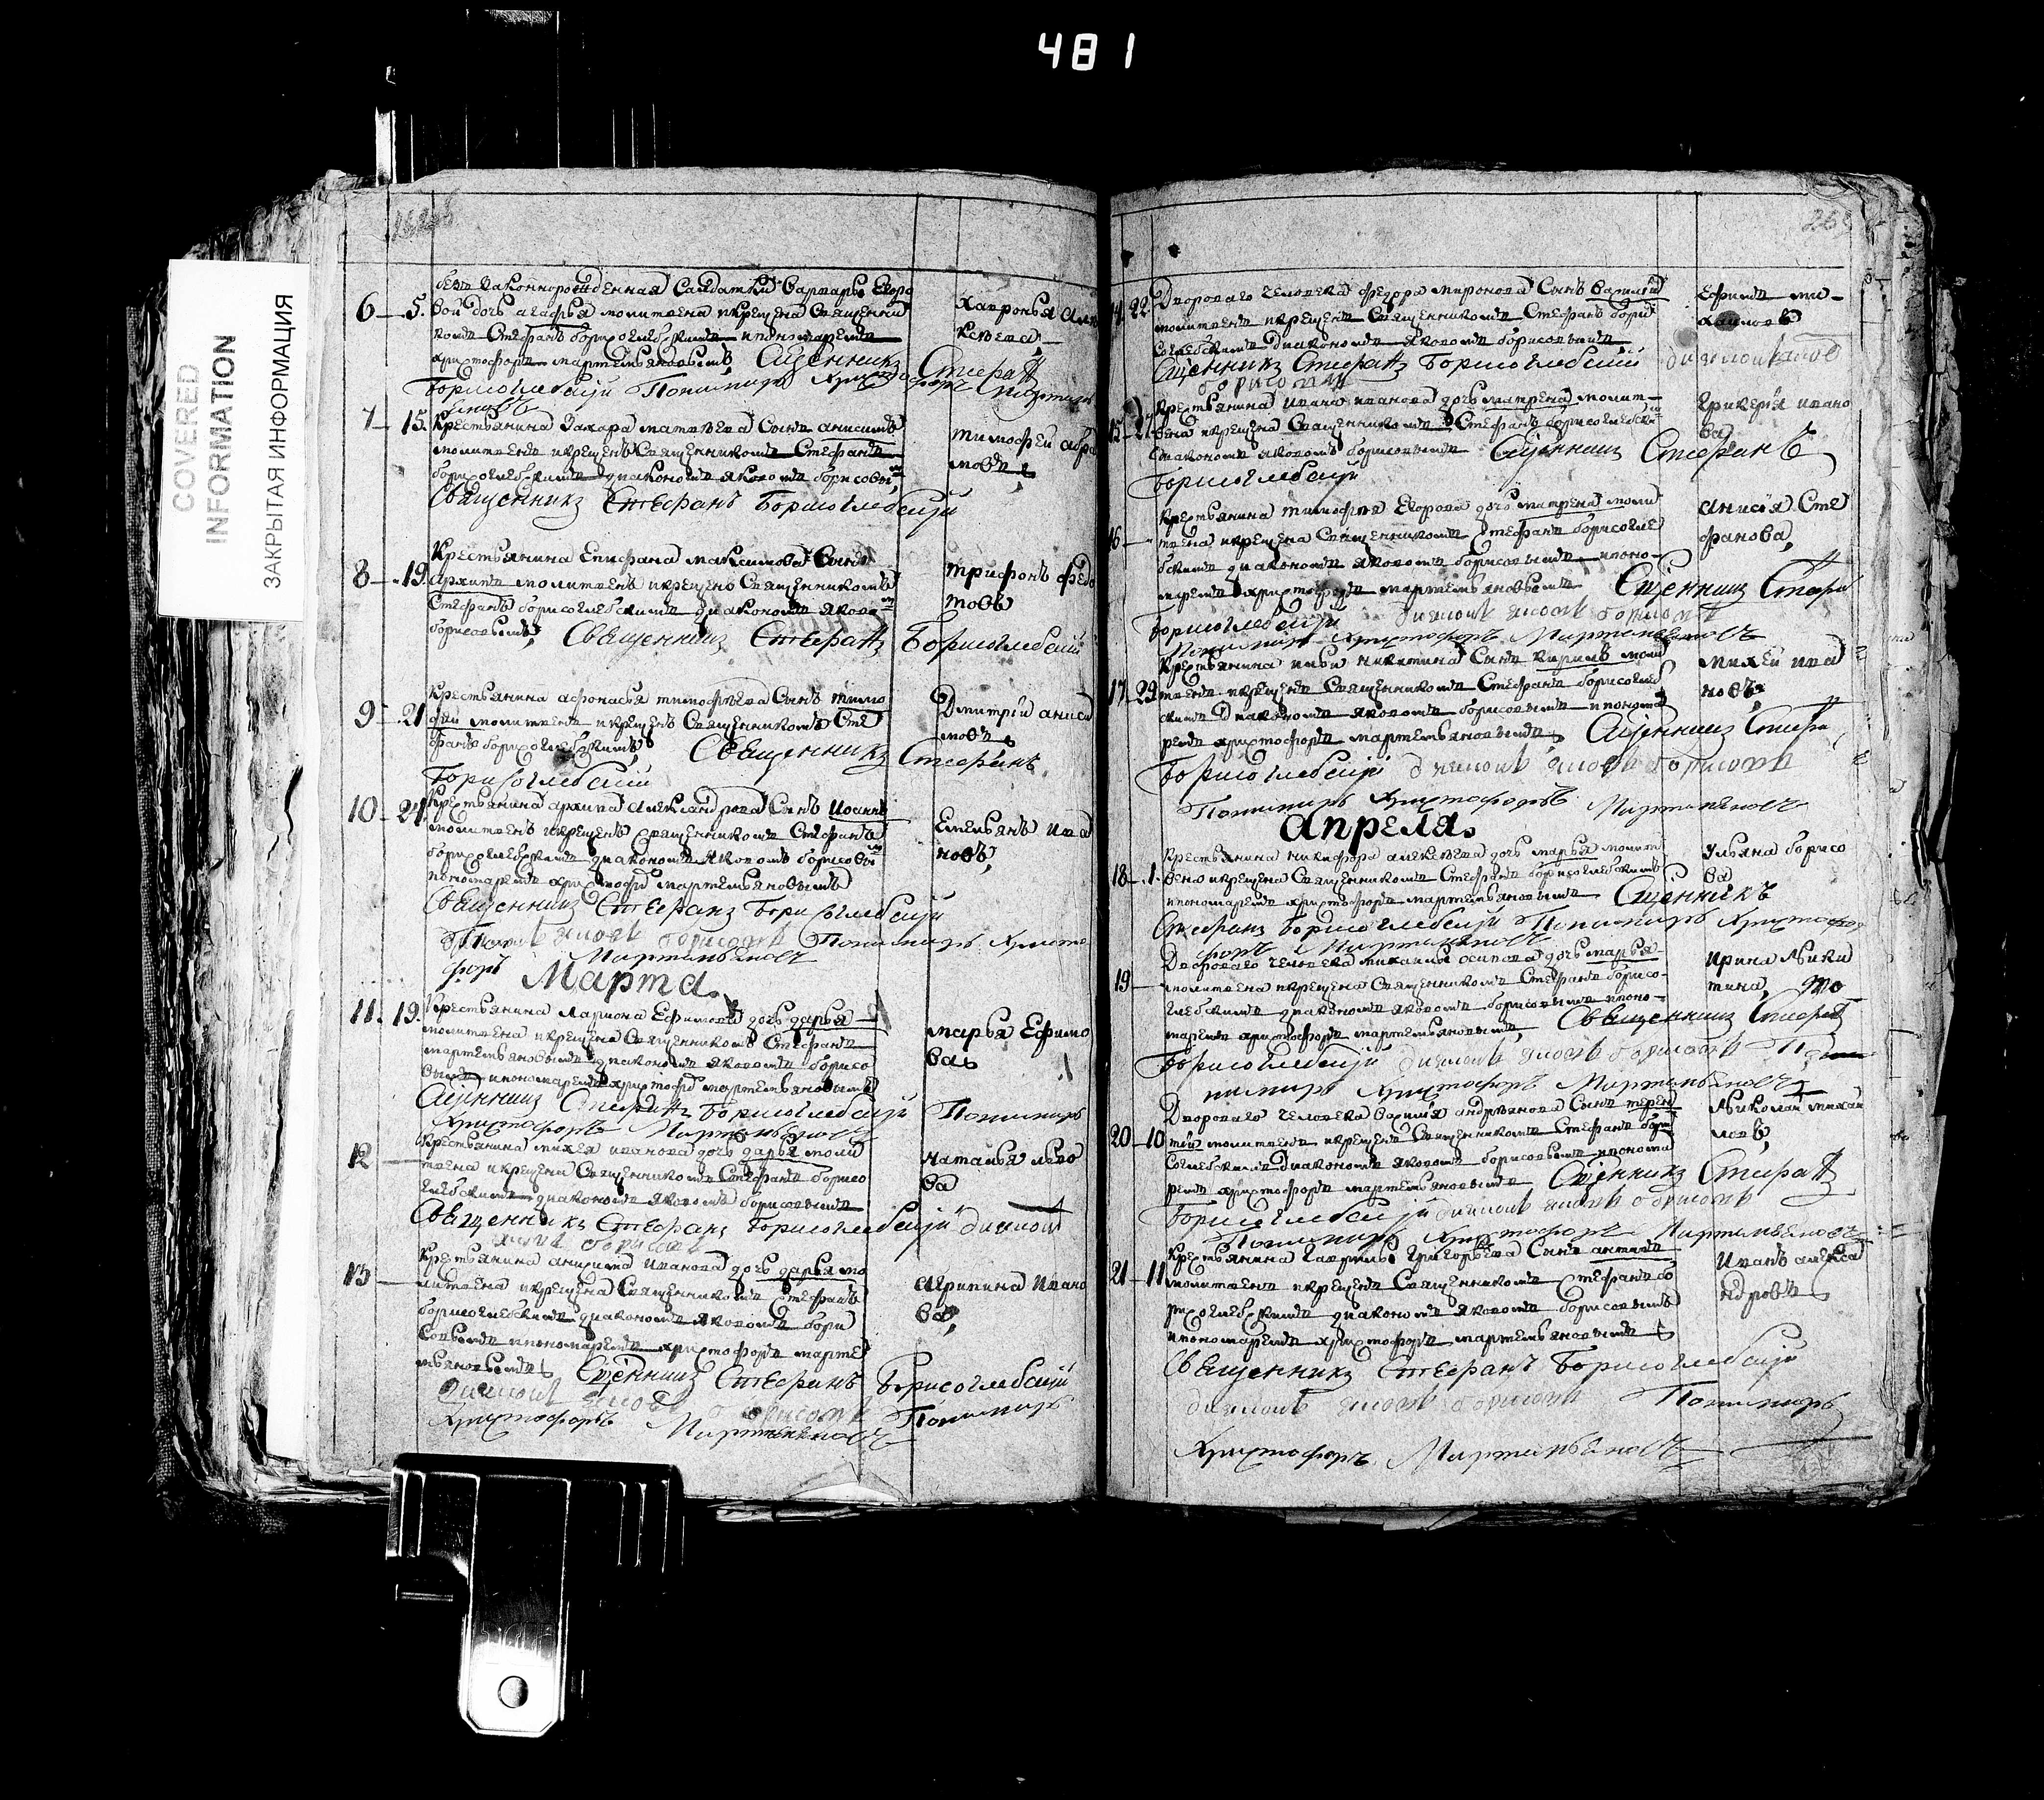 481
COVERED
INFORMATION
ЗАКРЫТАЯ ИНФОРМАЦИЯ
незаконнорожденная Салдатки Варвары Егоро
6 5. вой дочь агафья молитвена и крещена Священни
комъ Стефаномъ борисоглебскимъ и пономаремъ
христофоромъ мартемьяновымъ, Сщенникъ Стефанъ
Борисоглебский Пономарь Христофоръ Мартемь
яновъ
Хавронья Але
ксеева
7 15. Крестьянина Захара матвѣева Сынъ анисимъ
молитвенъ и крещенъ Священникомъ Стефаномъ
борисоглебскимъ диакономъ яковомъ борисовы
Священникъ Стефанъ Борисоглебский
тимофей абра
мовъ
8 19. Крестьянина Епифана максимова Сынъ
архипъ молитвенъ и крещенъ Священникомъ
Стефаномъ борисоглебскимъ диакономъ яково
борисовымъ, Священникъ Стефанъ Борисоглебский
трифонъ федо
товъ
Крестьянина афонасья тимофѣева Сынъ тимо
9 21 фей молитвенъ и крещенъ Священникомъ Сте
фаномъ борисоглебскимъ, Священникъ Стефанъ
Борисоглебский
Дмитрій аниси
мовъ
10 24. Крестьянина архипа александрова Сынъ Иоаннъ
молитвенъ и крещенъ Священникомъ Стефаномъ
борисоглебскимъ диакономъ яковомъ борисовы
пономаремъ христофо мартемьяновымъ
Священникъ Стефанъ Борисоглебский
яковъ борисовъ Пономарь Христо
форъ Мартемьяновъ
Емельянъ Ива
новъ,
Марта.
11. 19. Крестьянина Лариона Ефимова дочь дарья
молитвена и крещена Священникомъ Стефаномъ
мартемьяновымъ диакономъ яковомъ борисо
вымъ и пономаремъ христофо мартемьяновымъ
Сщенникъ Стефанъ Борисоглебский Пономарь
Христофоръ Мартемьяновъ
марья Ефимо
ва
12 Крестьянина михея иванова дочь дарья моли
твена и крещена Священникомъ Стефаномъ борисо
глебскимъ диакономъ яковомъ борисовымъ
Священникъ Стефанъ Борисоглебский диаконъ
яковъ борисовъ
наталья льво
ва
13 Крестьянина аникима Иванова дочь дарья мо
литвена и крещена Священникомъ Стефаномъ
борисоглебскимъ диакономъ яковомъ бори
совымъ и пономаремъ христофоромъ марте
мьяновымъ Сщенникъ Стефанъ Борисоглебский
диаконъ яковъ борисовъ Пономарь
Христофоръ Мартемьяновъ
агрипина Ивано
ва,
14. 22. Двороваго человека федора миронова Сынъ Василий
молитвенъ и крещенъ Священникомъ Стефаномъ борис
соглебскимъ диакономъ яковомъ борисовымъ
Сщенникъ Стефанъ Борисоглебский диаконъ яковъ
борисовъ
Ефимъ ми
хаиловъ
Крестьянина Ивана иванова дочь матрена молит
вена и крещена Священникомъ Стефаномъ борисоглебски
диакономъ яковомъ борисовымъ Сщенникъ Стефанъ
Борисоглебский
гликерия ивано
ва
Крестьянина тимофея Егорова дочь матрена моли
16 твена и крещена Священникомъ Стефаномъ борисогле
бскимъ диакономъ яковомъ борисовымъ и поно
маремъ христофоромъ мартемьяновымъ Сщенникъ Стефан
Борисоглебский диаконъ яковъ борисовъ
Пономарь Христофоръ Мартемьяновъ
анисія Сте
фанова,
Крестьянина никитина Сынъ кирилъ моли
17. 29. твенъ и крещенъ Священникомъ Стефаномъ борисоглеб
скимъ диакономъ яковомъ борисовымъ и понома
ремъ христофоромъ мартемьяновымъ Сщенникъ Стефан
Борисоглебский диаконъ яковъ борисовъ
Пономарь Христофоръ Мартемьяновъ
михей ива
новъ
Апреля.
Крестьянина никифора алексѣева дочь марья молит
18 1. вена и крещена Священникомъ Стефаномъ борисоглебскимъ
и пономаремъ христофоромъ мартемьяновымъ Сщенникъ
Стефанъ Борисоглебский Пономарь Христофо
форъ Мартемьяновъ
Ульяна борисо
ва
Двороваго человека михаила осипова дочь марья
19 молитвена и крещена Священникомъ Стефаномъ борисо
глебскимъ диакономъ яковомъ борисовымъ и поно
маремъ христофоромъ мартемьяновымъ, Священникъ Стефан
Борисоглебский диаконъ яковъ борисовъ По
номарь Христофоръ Мартемьяновъ
Ирина Ники
тина,
Двороваго человека Василья андрѣянова Сынъ терен
20 10 тий молитвенъ и крещенъ Священникомъ Стефаномъ бори
соглебскимъ диакономъ яковомъ борисовымъ и понома
ремъ христофоромъ мартемьяновымъ Сщенникъ Стефан
Борисоглебский диаконъ яковъ борисовъ
Пономарь Христофоръ Мартемьяновъ
Николай михаи
ловъ,
Крестьянина Гаврилы Григорьева Сынъ антипъ
21 11 молитвенъ и крещенъ Священникомъ Стефаномъ бо
рисоглебскимъ диакономъ яковомъ борисовымъ
и пономаремъ христофоромъ мартемьяновымъ
Священникъ Стефанъ Борисоглебский
диаконъ яковъ борисовъ Пономарь
Христофоръ Мартемьяновъ
Иванъ алекса
ндровъ